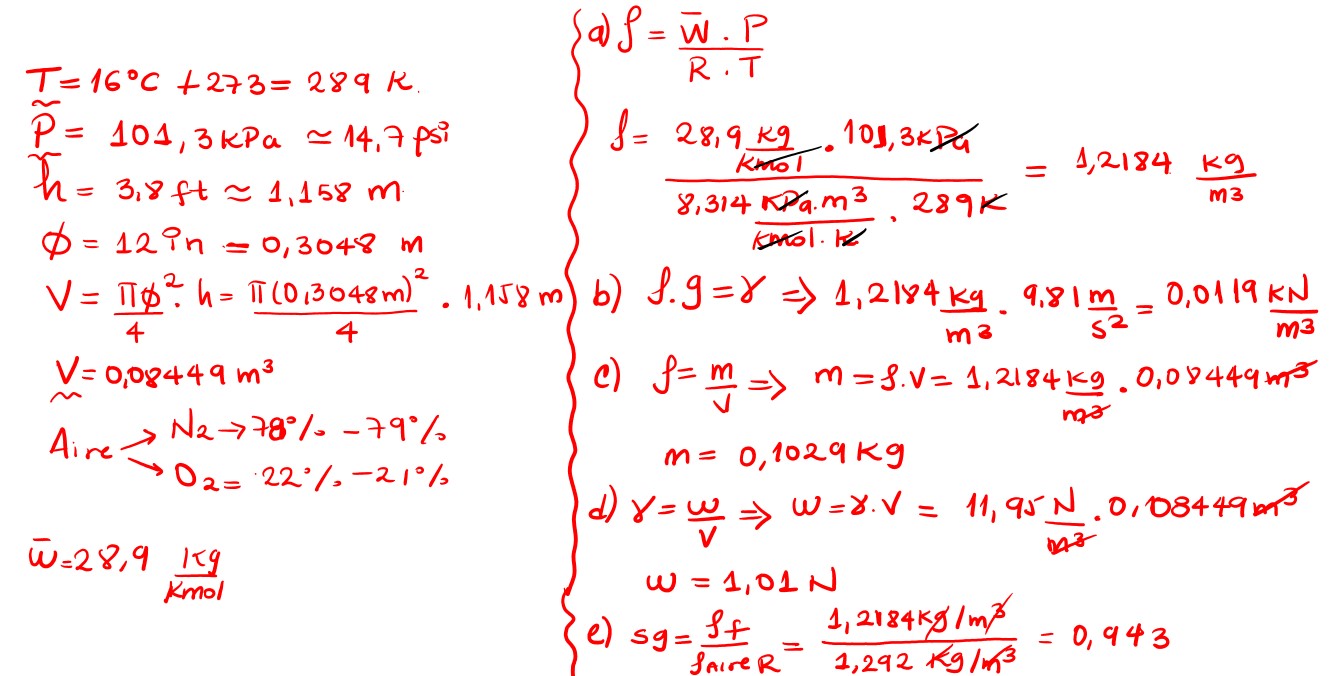 T = 16°C + 273 = 289 K.
P = 101,3 kPa ≃ 14,7 psi
h = 3,8 ft ≈ 1,158 m
φ = 12 in = 0,3048 m
V = πφ²/4 · h = π(0,3048m)²/4 · 1,158 m
V = 0,08449 m³
Aire → N2 → 78% - 79%
→ O2 = 22% - 21%
w̄ = 28,9 Kg/Kmol
a) ρ = w̄ . P / R . T
ρ = 28,9 kg/kmol · 101,3 kPa / 8,314 kPa.m³/kmol.k · 289 K = 1,2184 kg/m³
b) ρ.g = γ ⇒ 1,2184 kg/m³ · 9,81 m/s² = 0,0119 kN/m³
c) ρ = m/V ⇒ m = ρ.V = 1,2184 kg/m³ · 0,08449 m³
m = 0,1029 Kg
d) γ = w/V ⇒ w = γ.V = 11,95 N/m³ · 0,08449 m³
w = 1,01 N
e) sg = ρf/ρaire R = 1,2184 kg/m³ / 1,292 kg/m³ = 0,943